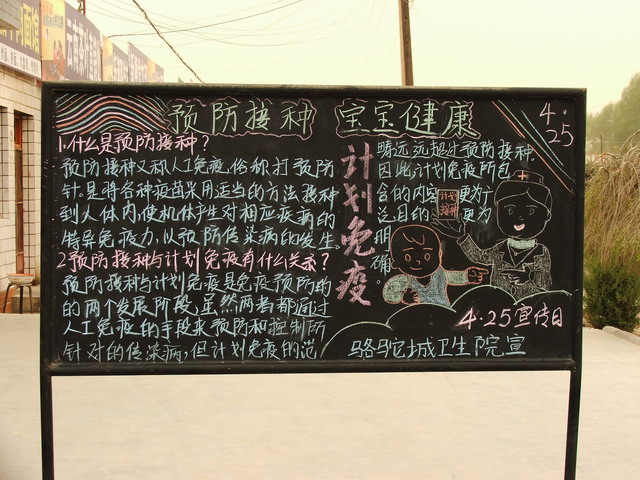 预防接种 宝宝健康
4.25
1.什么是预防接种？
预防接种又称人工免疫,俗称打预防
针。是将各种疫苗采用适当的方法接种
到人体内,使机体产生对相应疾病的
特异免疫力,以预防传染病的发生。
2预防接种与计划免疫有什么关系？
预防接种与计划免疫是免疫预防的
的两个发展阶段,虽然两者都通过
人工免疫的手段来预防和控制所
针对的传染病,但计划免疫的范
计划免疫
畴远远超过预防接种.
因此,计划免疫所包
含的内容更为广
泛,目的更为
明
确。
计划
接种
4.25宣传日
骆驼城卫生院宣